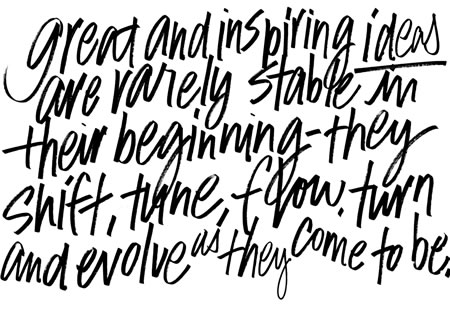 great and inspiring ideas
are rarely stable in
their beginning-they
shift, tune, flow. turn
and evolve as they come to be.